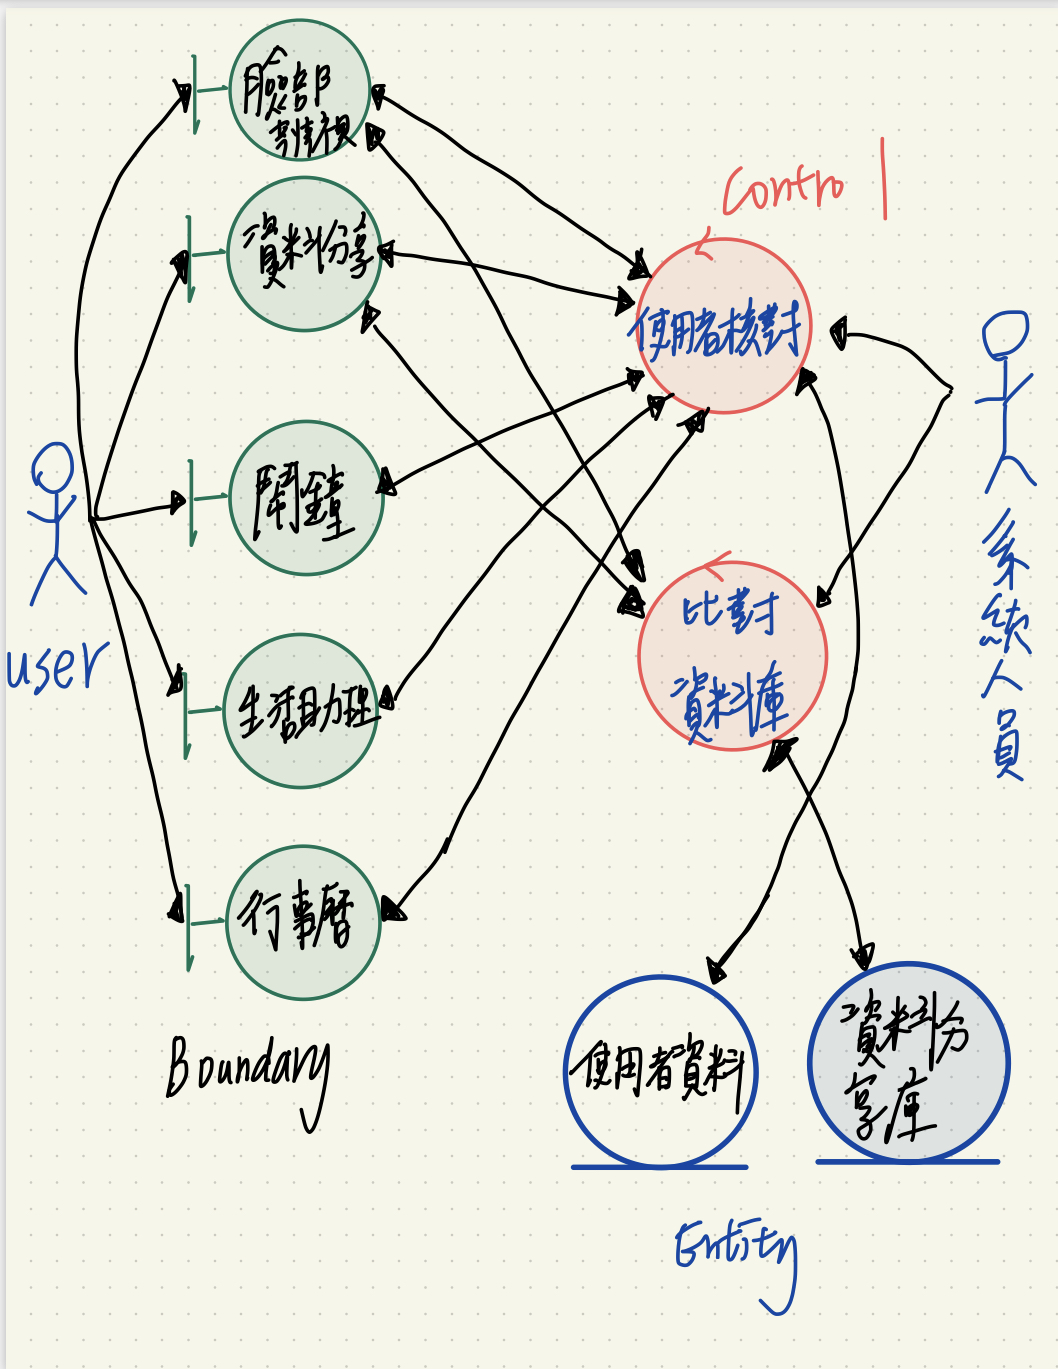 臉部
辨視
資料分享
鬧鐘
生活助理
行事曆
Boundary
user
Control
使用者核對
比對
資料庫
系統人員
使用者資料
資料分
享庫
Entity